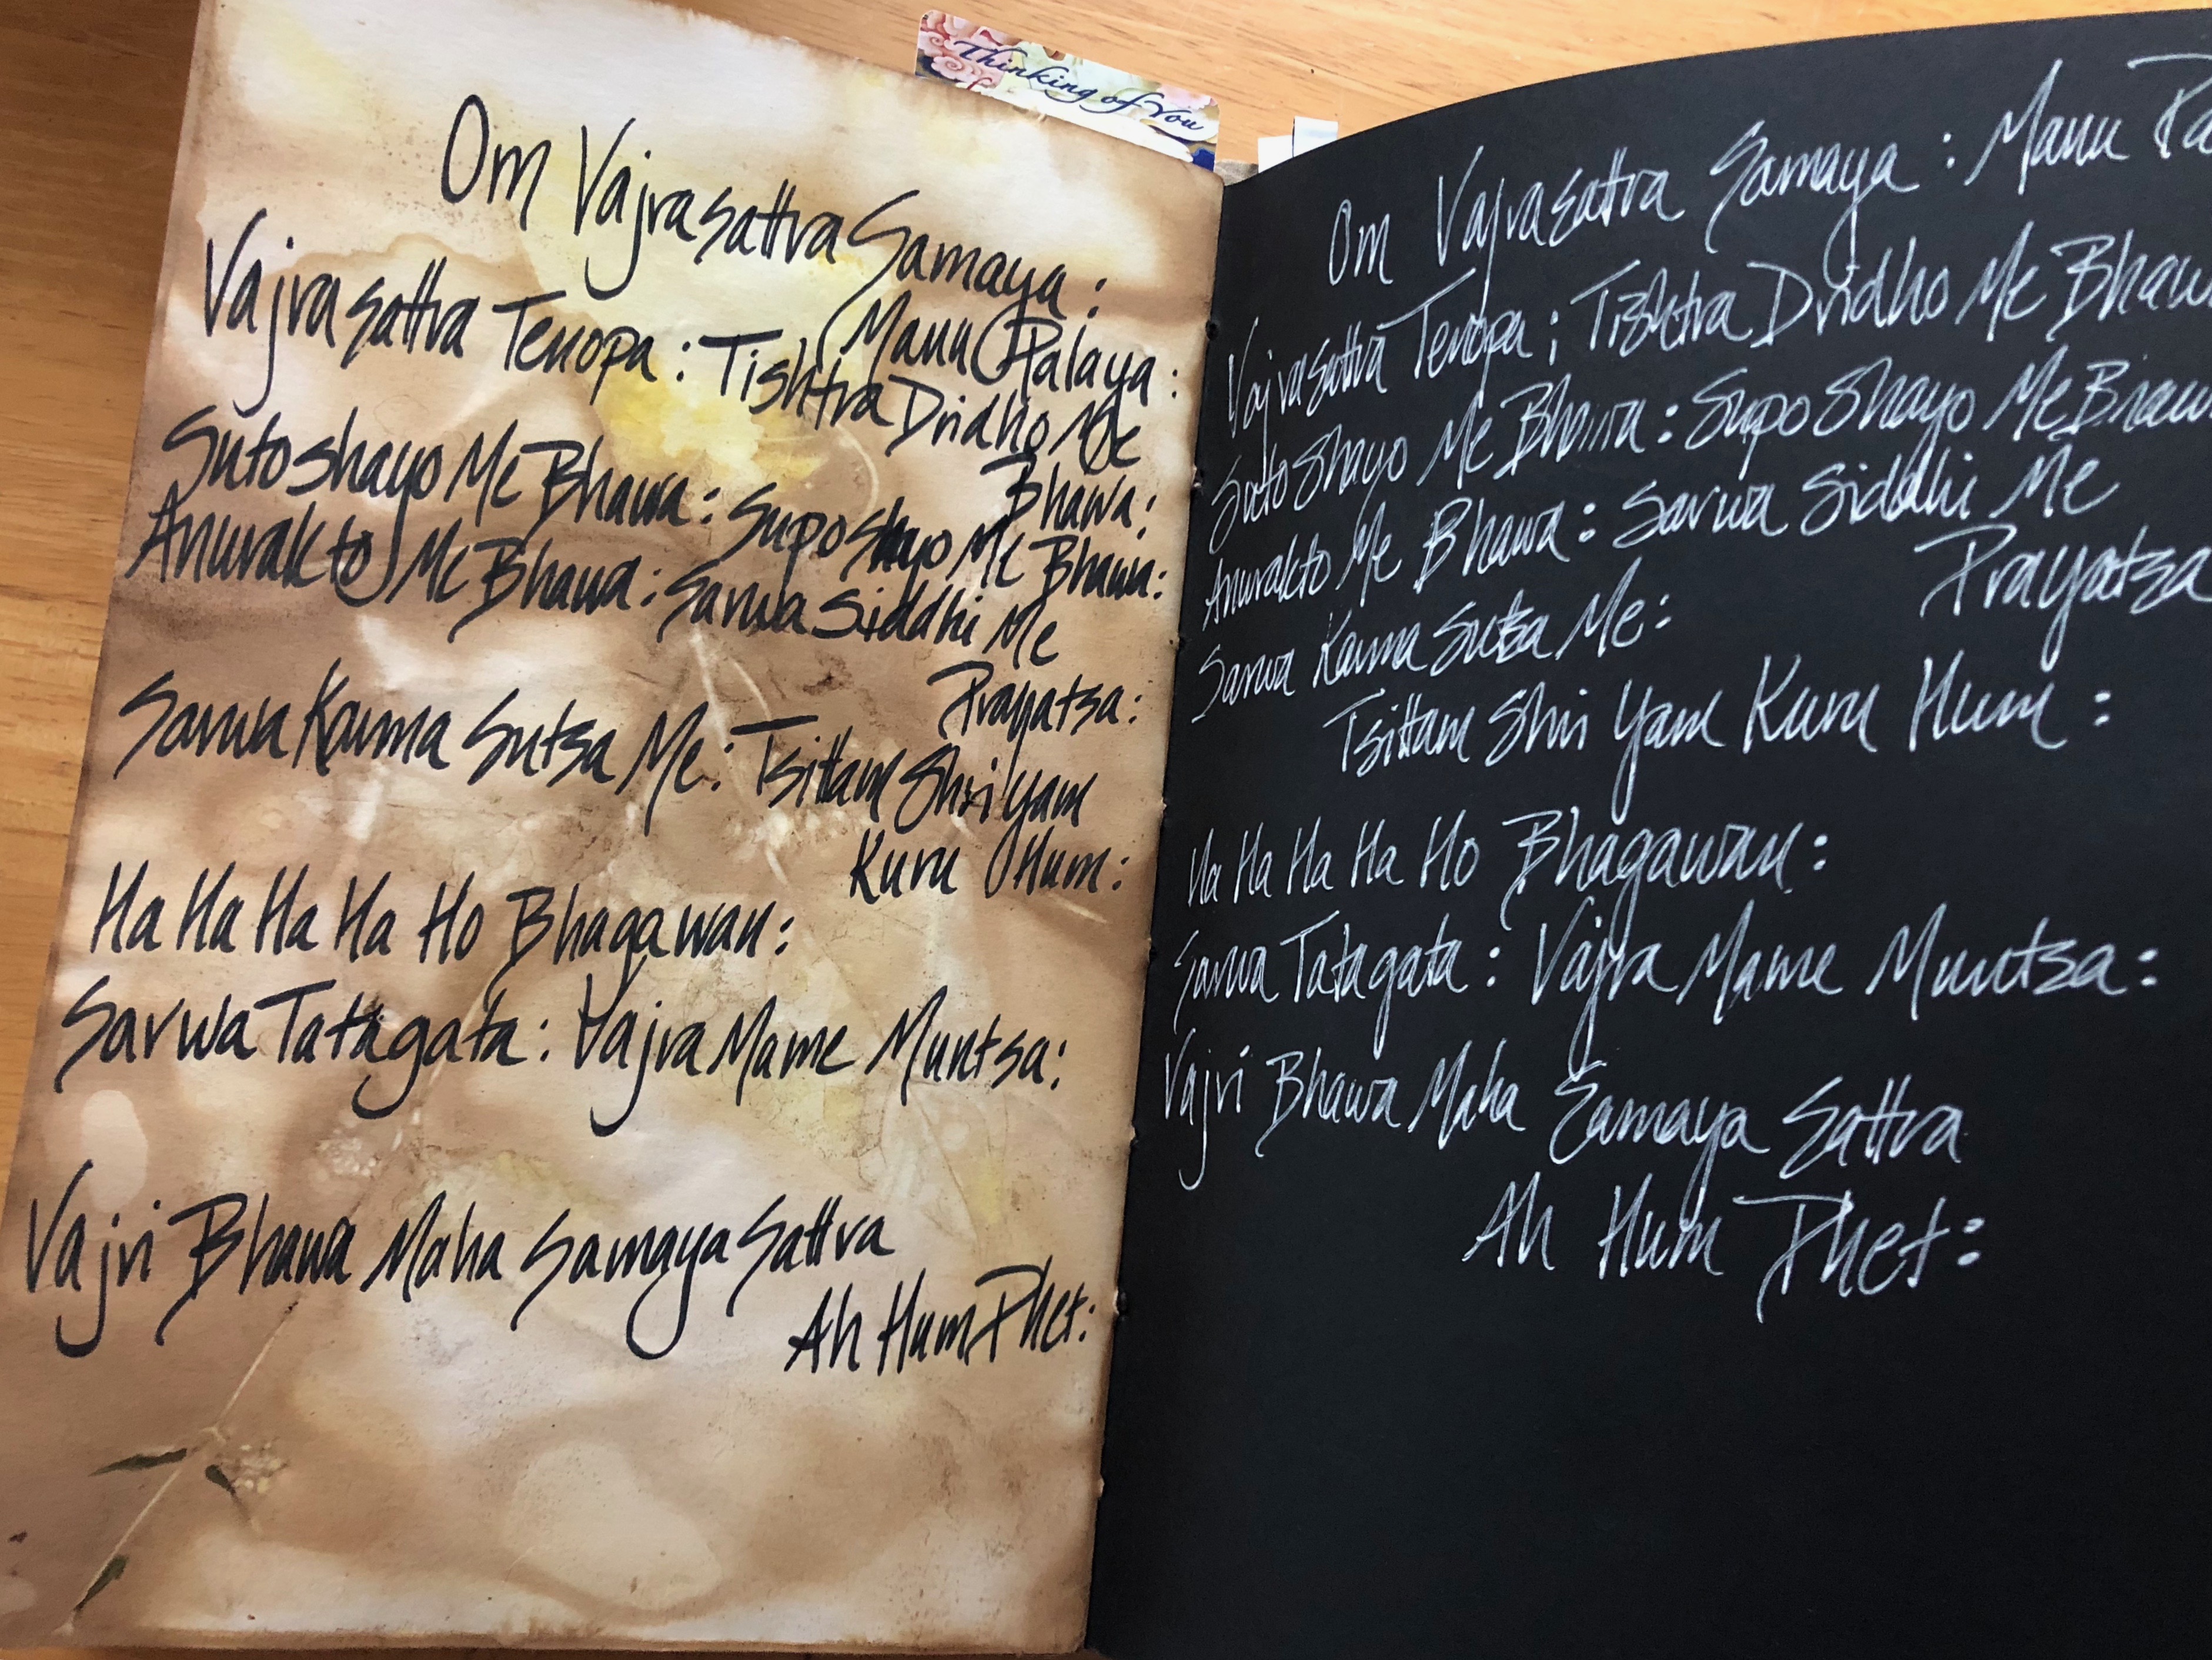 Thinking of You
Om Vajrasattva Samaya:
Manu Palaya:
Vajrasattva Tenopa: Tishtra Dridho Me
Bhawa:
Sutoshayo Me Bhawa: Suposhayo Me Bhawa:
Anurakto Me Bhawa: Sarwa Siddhi Me
Prayatsa:
Sarwa Karma Sutsa Me: Tsittam Shri Yam
Kuru Hum:
Ha Ha Ha Ha Ho Bhagawan:
Sarwa Tatagata: Vajra Mame Muntsa:
Vajri Bhawa Maha Samaya Sattva
Ah Hum Phet:
Om Vajrasattva Samaya: Manu Pa
Vajrasattva Tenopa; Tishtra Dridho Me Bhaw
Sutoshayo Me Bhawa: Suposhayo Me Bhaw
Anurakto Me Bhawa: Sarwa Siddhi Me
Prayatsa
Sarwa Karma Sutsa Me:
Tsittam Shri Yam Kuru Hum:
Ha Ha Ha Ha Ho Bhagawan:
Sarwa Tatagata: Vajra Mame Muntsa:
Vajri Bhawa Maha Samaya Sattva
Ah Hum Phet: